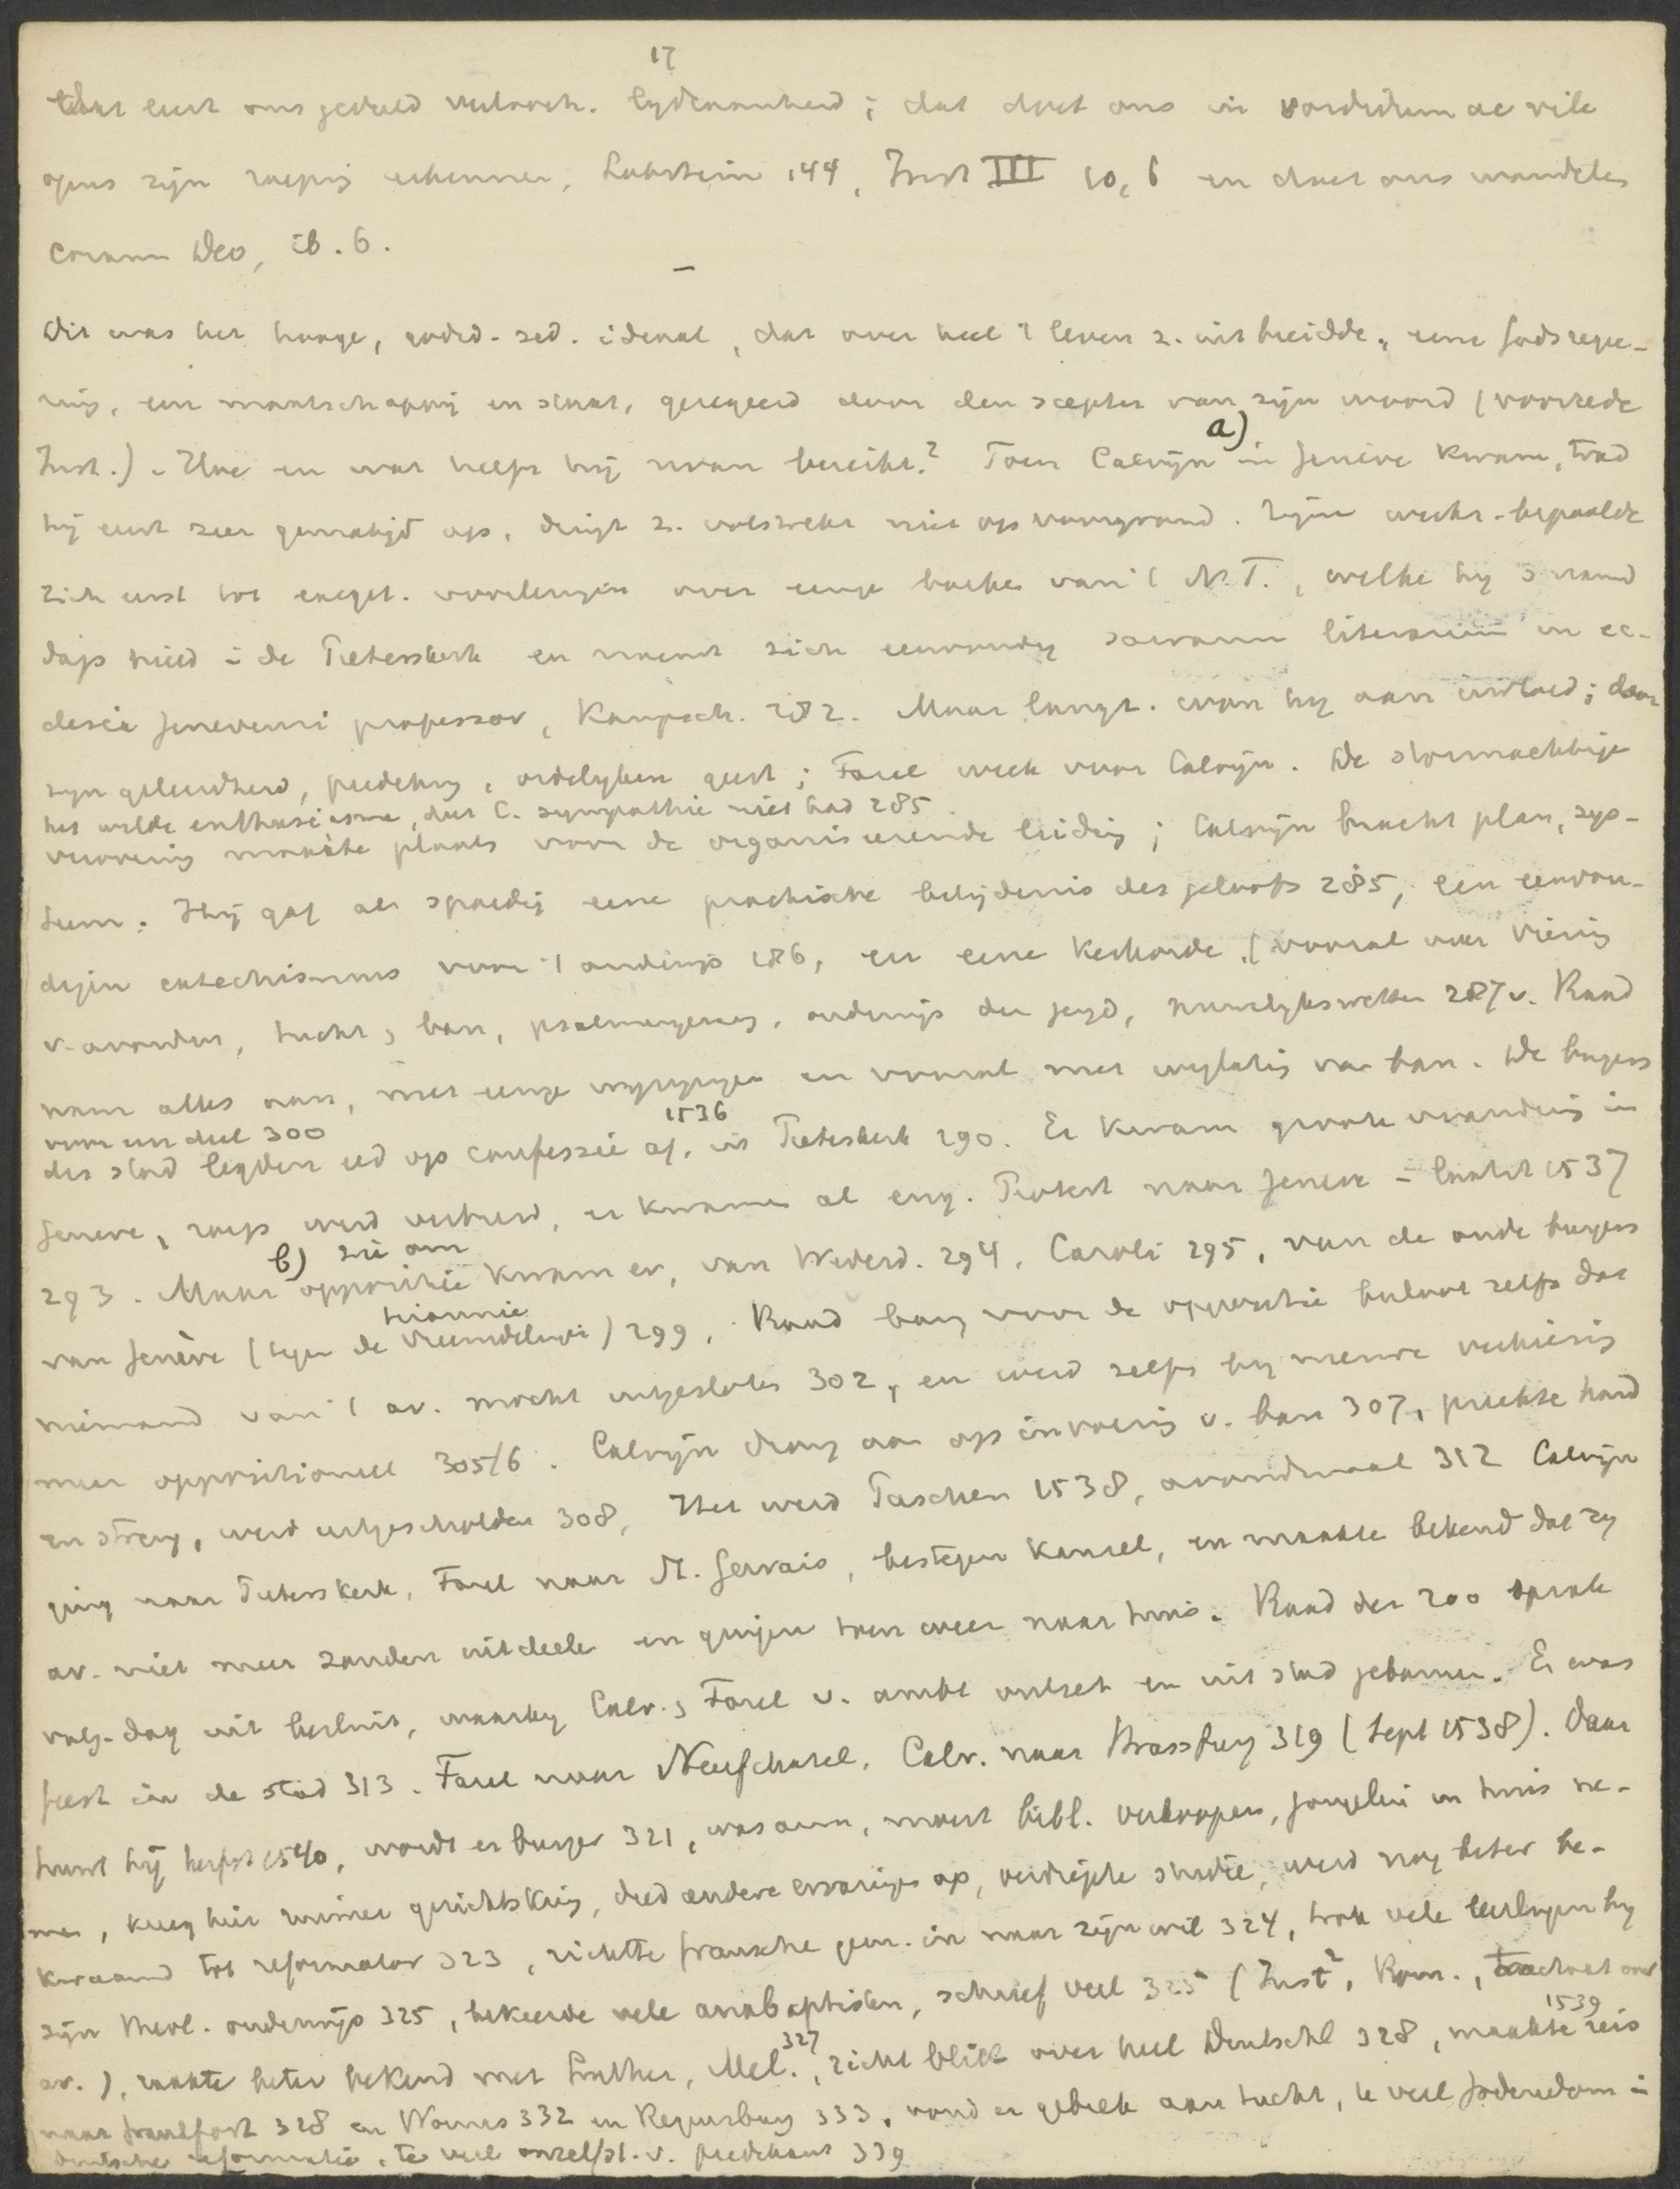 17
dat leert ons geduld verdrach. lydzaamheid; dat doet ons in sordidum ac vile
opus zijn roeping erkennen, Lobstein 144, Inst III 10,6 en doet ons wandelen
coram Deo, ib. 6.
–
Dit was het hooge, godsd.-zed. ideaal, dat over heel 't leven z. uitbreidde, eene Godsregee-
ring, een maatschappij en staat, geregeerd door den scepter van zijn woord (voorrede
Inst.). Hoe en wat heeft hij ervan bereikt? Toen Calvijn a) in Genève kwam, trad
hij eerst zeer gematigd op, dringt z. volstrekt niet op voorgrond. Zijn werkz. bepaalde
zich eerst tot exeget. voorlezingen over eenige boeken van 't N.T., welke hy 's namid
dags hield in de Pieterskerk en noemt zich eenvoudig sacrarum literarum in ec-
clesia Genevensi professor, Kampsch. 282. Maar langz. won hy aan invloed; door
zyn geleerdheid, prediking, ordelyken geest; Farel week voor Calvijn. De stormachtige
het wilde enthusiasme, daar C. sympathie niet had 285
verovering maakte plaats voor de organiseerende leiding; Calvijn bracht plan, sys-
teem. Hij gaf al spoedig eene practische belijdenis des geloofs 285, een eenvou-
digen catechismus voor 't onderwijs 286, en eene kerkorde (vooral over viering
v. avondm, tucht, ban, psalmgezang, onderwijs der jeugd, huwelykswetten 287v. Raad
nam alles aan, met eenige wyzigingen en vooral met weglating van ban. De burgers
voor een deel 300
der stad legden eed op confessie af, 1536 in Pieterskerk 290. Er kwam groote verandering in
Geneve, roeps werd verbreid, er kwamen al eng. Protest naar Geneve in laatst 1537
293. Maar b) zie om oppositie kwam er, van Wederd. 294, Caroli 295, van de oude burgers
van Genève (tegen de tirannie vreemdelingen) 299. Raad bang voor de oppositie besloot zelfs dat
niemand van 't av. mocht uitgesloten 302, en werd zelfs by nieuwe verkiezing
meer oppositioneel 305/6. Calvijn drong aan op invoering v. ban 307, preekte hard
en streng, werd uitgescholden 308, Het werd Paschen 1538, avondmaal 312 Calvijn
ging naar Pieterskerk, Farel naar St. Gervais, bestegen kansel, en maakte bekend dat zy
av. niet meer zouden uitdeelen en gingen toen weer naar huis. Raad der 200 sprak
volg. dag uit besluit, waarby Calv. & Farel v. ambt ontzet en uit stad gebannen. Er was
feest in de stad 313. Farel naar Neufchatel, Calv. naar Strassburg 319 (Sept 1538). Daar
bleef hij herfst 1540, wordt er burger 321, was arm, moest bibl. verkoopen, jongelui in huis ne-
men, kreeg hier ruimer gezichtskring, deed andere ervaringen op, verdiepte studie, werd nog beter be-
kwaamd tot reformator 323, richtte fransche gem. in naar zijn wil 324, trok vele leerlingen by
zyn theol. onderwijs 325, bekeerde vele anabaptisten, schreef veel 325 (Inst², Rom., tractaat over
av.), raakte beter bekend met Luther, Mel. 327, richt blik over heel Deutschl 328, maakte 1539 reis
naar Frankfort 328 en Worms 332 en Regensburg 333, vond er gebrek aan tucht, te veel Jodendom in
duitsche reformatie, te veel onzelfst. v. predikant 339